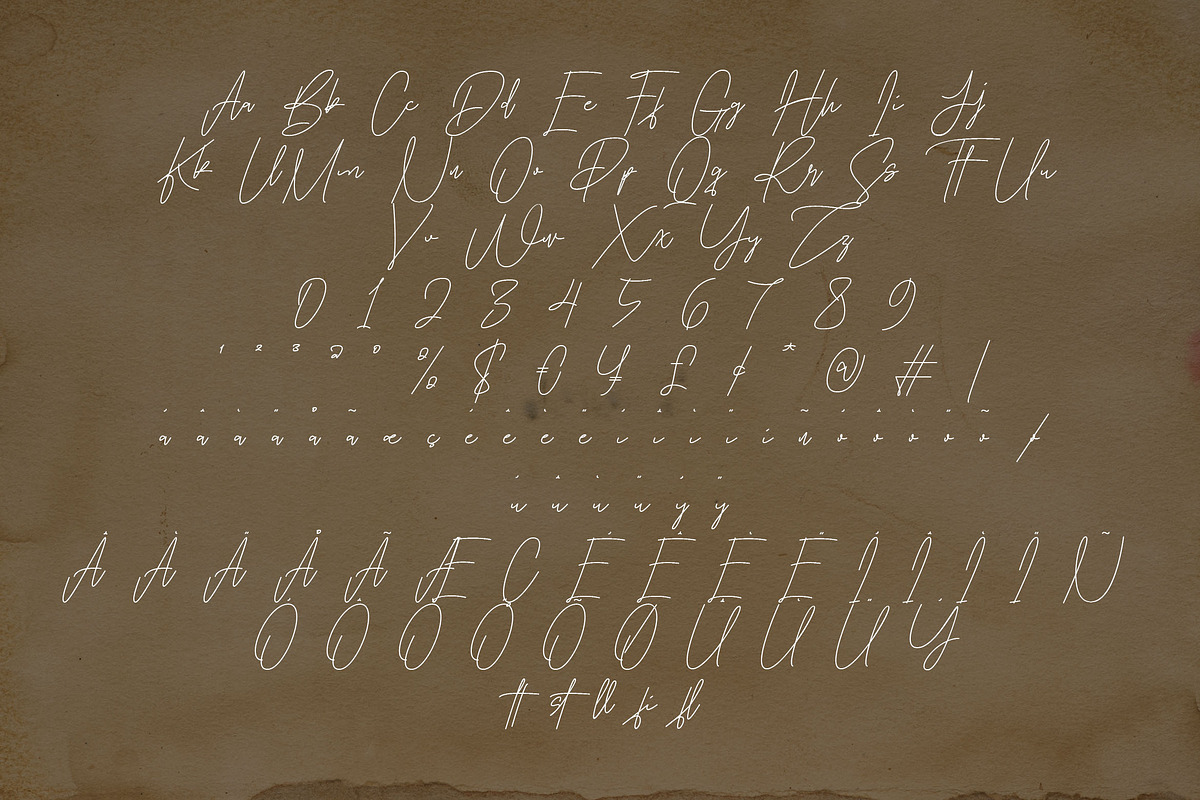 Aa Bb Cc Dd Ee Ff Gg Hh Ii Jj
Kk Ll Mm Nn Oo Pp Qq Rr Ss Tt Uu
Vv Ww Xx Yy Zz
0 1 2 3 4 5 6 7 8 9
¹ ² ³ ª º % $ € ¥ £ ¢ * @ # |
á â à ä å ã æ ç é ê è ë í î ì ï í ñ ó ô ò ö õ /
ú û ù ü ý ÿ
Â À Ä Å Ã Æ Ç É Ê È Ë Í Î Ì Ï Ñ
Ó Ô Ò Ö Õ Ø Û Ù Ü Ý
tt st ll fi fl